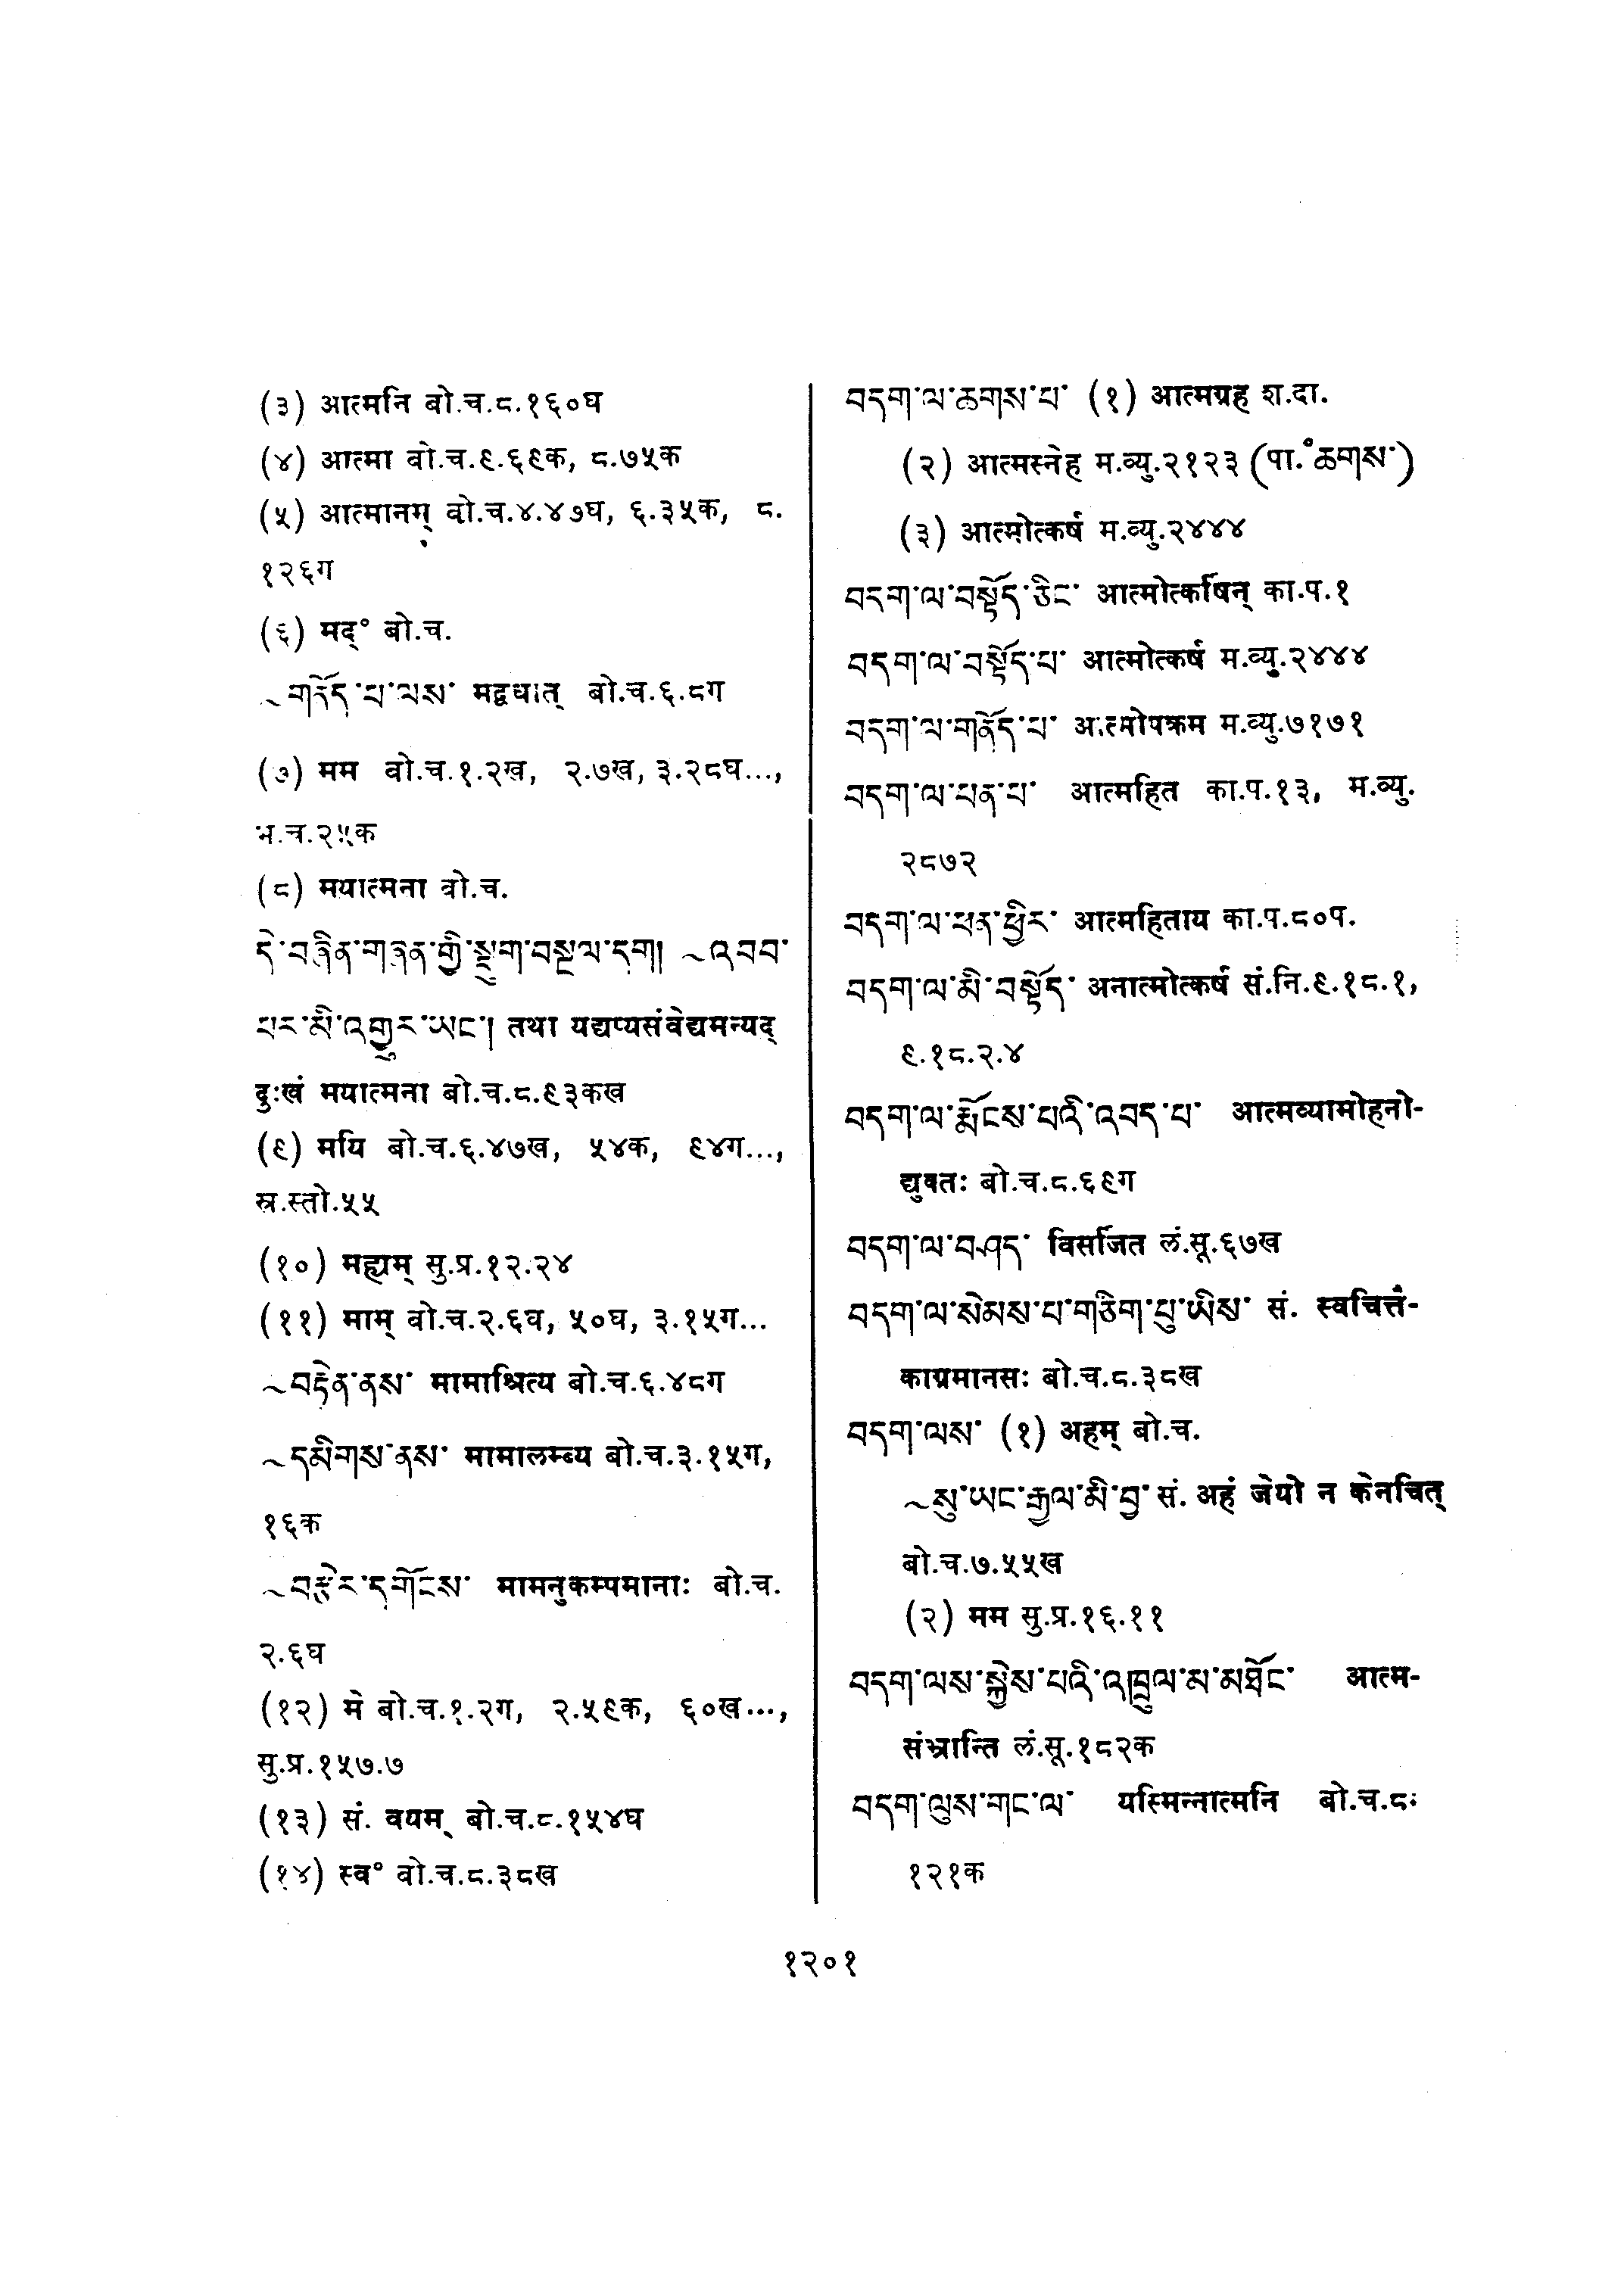 (३) आत्मनि बो.च.८.१६०घ
(४) आत्मा बो.च.९.६९क, ८.७५क
(५) आत्मानम् बो.च.४.४७घ, ६.३५क, ८.
१२६ग
(६) मद्° बो.च.
~གནོད་པ་ལས་ मद्वधात् बो.च.६.८ग
(७) मम बो.च.१.२ख, २.७ख, ३.२८घ...,
भ.च.२५क
(८) मयात्मना बो.च.
དེ་བཞིན་གཞན་གྱི་སྡུག་བསྔལ་དག། ~འབབ་
པར་མི་འགྱུར་ཡང་། तथा यद्यप्यसंवेद्यमन्यद्
दुःखं मयात्मना बो.च.८.९३कख
(९) मयि बो.च.६.४७ख, ५४क, ९४ग...,
स्र.स्तो.५५
(१०) मह्यम् सु.प्र.१२.२४
(११) माम् बो.च.२.६घ, ५०घ, ३.१५ग...
~བརྟེན་ནས་ मामाश्रित्य बो.च.६.४८ग
~དམིགས་ནས་ मामालम्ब्य बो.च.३.१५ग,
१६क
~བརྩེར་དགོངས་ मामनुकम्पमानाः बो.च.
२.६घ
(१२) मे बो.च.१.२ग, २.५९क, ६०ख...,
सु.प्र.१५७.७
(१३) सं. वयम् बो.च.८.१५४घ
(१४) स्व° बो.च.८.३८ख
བདག་ལ་ཆགས་པ་ (१) आत्मग्रह श.दा.
(२) आत्मस्नेह म.व्यु.२१२३ (पा.°ཆགས་)
(३) आत्मोत्कर्ष म.व्यु.२४४४
བདག་ལ་བསྟོད་ཅིང་ आत्मोत्कर्षिन् का.प.१
བདག་ལ་བསྟོད་པ་ आत्मोत्कर्ष म.व्यु.२४४४
བདག་ལ་གནོད་པ་ आत्मोपक्रम म.व्यु.७१७१
བདག་ལ་པན་པ་ आत्महित का.प.१३, म.व्यु.
२८७२
བདག་ལ་ཕན་ཕྱིར་ आत्महिताय का.प.८०प.
བདག་ལ་མི་བསྟོད་ अनात्मोत्कर्ष सं.नि.९.१८.१,
९.१८.२.४
བདག་ལ་རྨོངས་པའི་འབད་པ་ आत्मव्यामोहनो-
द्युक्तः बो.च.८.६९ग
བདག་ལ་བཤད་ विसर्जित लं.सू.६७ख
བདག་ལ་སེམས་པ་གཅིག་པུ་ཡིས་ सं. स्वचित्तै-
काग्रमानसः बो.च.८.३८ख
བདག་ལས་ (१) अहम् बो.च.
~སུ་ཡང་རྒྱལ་མི་བྱ་ सं. अहं जेयो न केनचित्
बो.च.७.५५ख
(२) मम सु.प्र.१६.११
བདག་ལས་སྐྱེས་པའི་འཁྲུལ་མ་མཐོང་ आत्म-
संभ्रान्ति लं.सू.१८२क
བདག་ལུས་གང་ལ་ यस्मिन्नात्मनि बो.च.८.
१२१क
१२०१